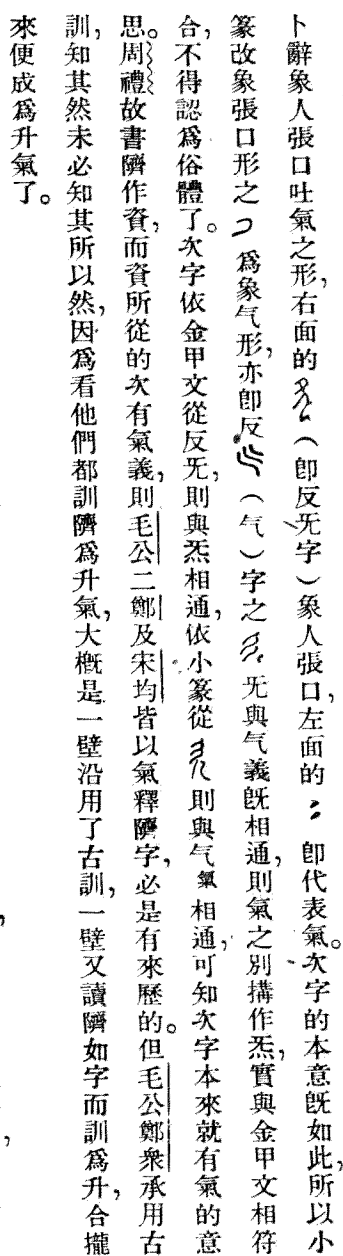 卜辭象人張口吐氣之形,右面的(卽反旡字)象人張口,左面的 卽代表氣。次字的本意旣如此,所以小
篆改象張口形之 爲象气形,亦卽反(气)字之 旡與气義旣相通,則氣之別搆作炁,實與金甲文相符
合,不得認爲俗體了。次字依金甲文從反旡,則與炁相通,依小篆從 則與气氣相通,可知次字本來就有氣的意
思。周禮故書隮作資,而資所從的次有氣義,則毛公二鄭及宋均皆以氣釋隮字,必是有來歷的。但毛公鄭衆承用古
訓,知其然未必知其所以然,因爲看他們都訓隮爲升氣,大槪是一壁沿用了古訓,一壁又讀隮如字而訓爲升,合攏
來便成爲升氣了。